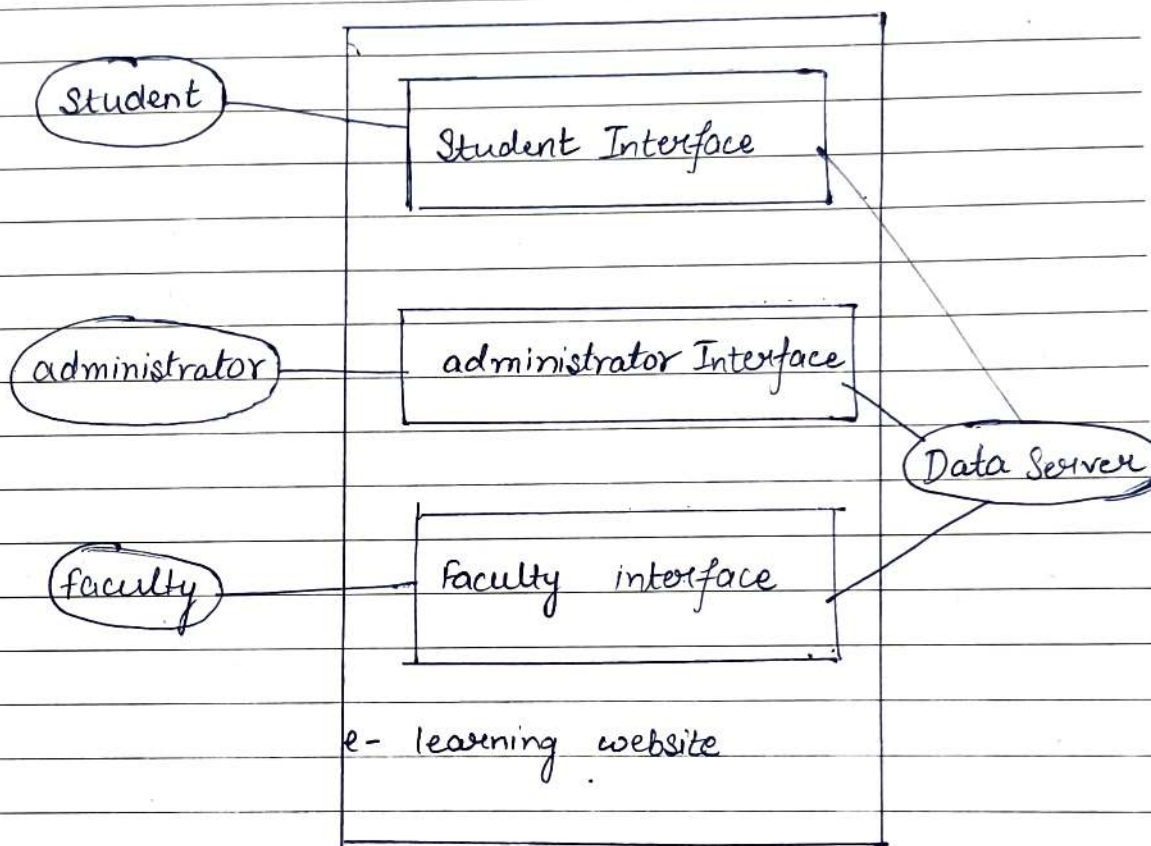 Student
Student Interface
administrator
administrator Interface
Data Server
faculty
Faculty interface
e- learning website